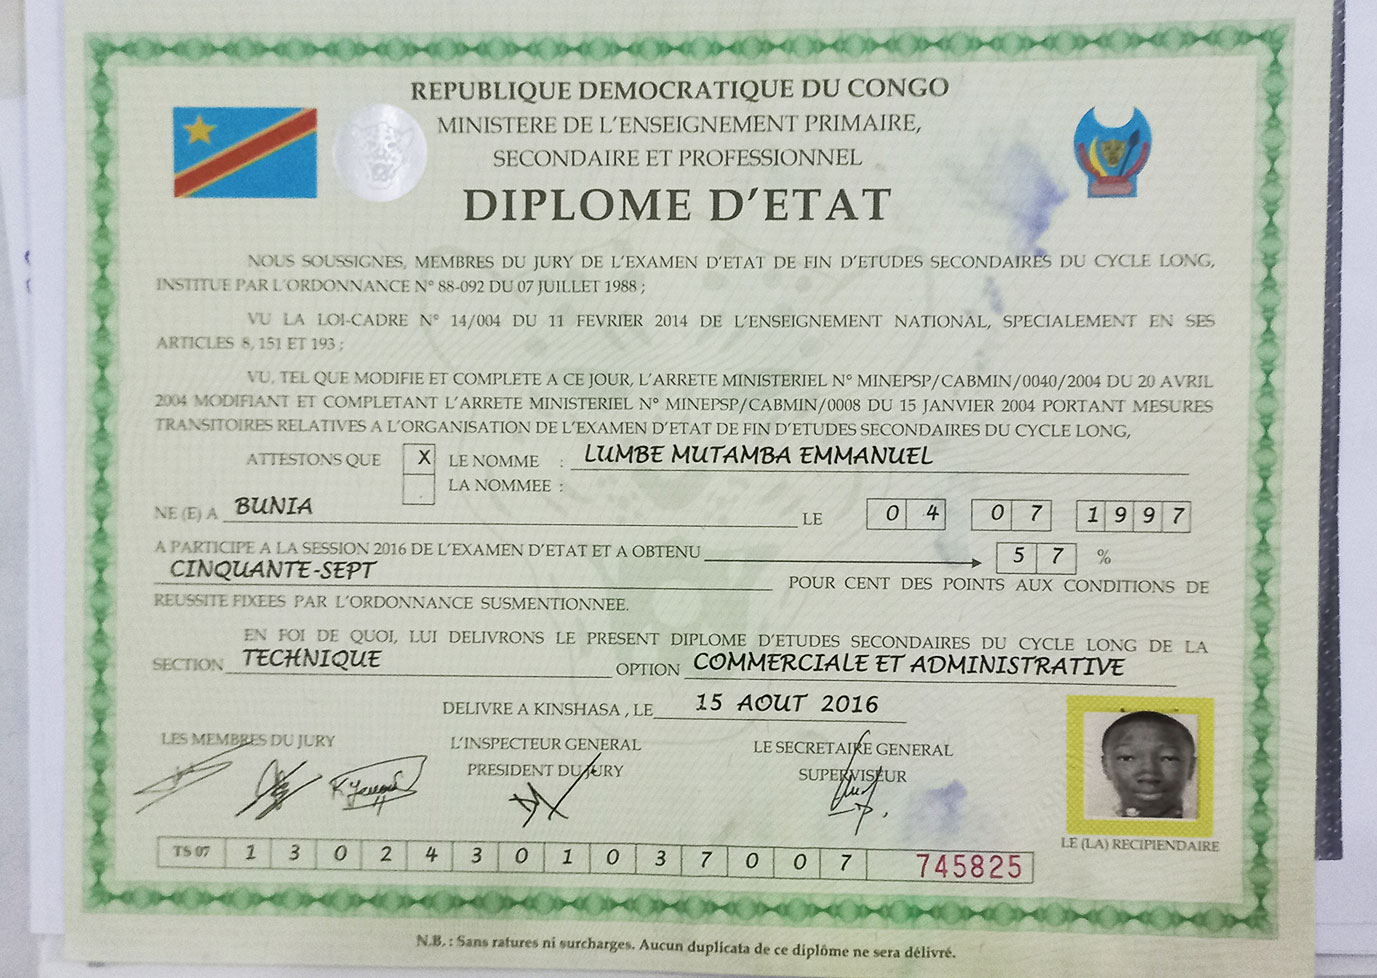 REPUBLIQUE DEMOCRATIQUE DU CONGO
MINISTERE DE L'ENSEIGNEMENT PRIMAIRE,
SECONDAIRE ET PROFESSIONNEL
DIPLOME D'ETAT
NOUS SOUSSIGNES, MEMBRES DU JURY DE L'EXAMEN D'ETAT DE FIN D'ETUDES SECONDAIRES DU CYCLE LONG,
INSTITUE PAR L'ORDONNANCE N° 88-092 DU 07 JUILLET 1988 ;
VU LA LOI-CADRE N° 14/004 DU 11 FEVRIER 2014 DE L'ENSEIGNEMENT NATIONAL, SPECIALEMENT EN SES
ARTICLES 8, 151 ET 193 ;
VU, TEL QUE MODIFIE ET COMPLETE A CE JOUR, L'ARRETE MINISTERIEL N° MINEPSP/CABMIN/0040/2004 DU 20 AVRIL
2004 MODIFIANT ET COMPLETANT L'ARRETE MINISTERIEL N° MINEPSP/CABMIN/0008 DU 15 JANVIER 2004 PORTANT MESURES
TRANSITOIRES RELATIVES A L'ORGANISATION DE L'EXAMEN D'ETAT DE FIN D'ETUDES SECONDAIRES DU CYCLE LONG,
ATTESTONS QUE X LE NOMME : LUMBE MUTAMBA EMMANUEL
LA NOMMEE :
NE (E) A BUNIA LE 04 07 1997
A PARTICIPE A LA SESSION 2016 DE L'EXAMEN D'ETAT ET A OBTENU 57 %
CINQUANTE-SEPT POUR CENT DES POINTS AUX CONDITIONS DE
REUSSITE FIXEES PAR L'ORDONNANCE SUSMENTIONNEE.
EN FOI DE QUOI, LUI DELIVRONS LE PRESENT DIPLOME D'ETUDES SECONDAIRES DU CYCLE LONG DE LA
SECTION TECHNIQUE OPTION COMMERCIALE ET ADMINISTRATIVE
DELIVRE A KINSHASA , LE 15 AOUT 2016
LES MEMBRES DU JURY L'INSPECTEUR GENERAL LE SECRETAIRE GENERAL
PRESIDENT DU JURY SUPERVISEUR
LE (LA) RECIPIENDAIRE
TS 07 1 3 0 2 4 3 0 1 0 3 7 0 0 7 745825
N.B. : Sans ratures ni surcharges. Aucun duplicata de ce diplôme ne sera délivré.